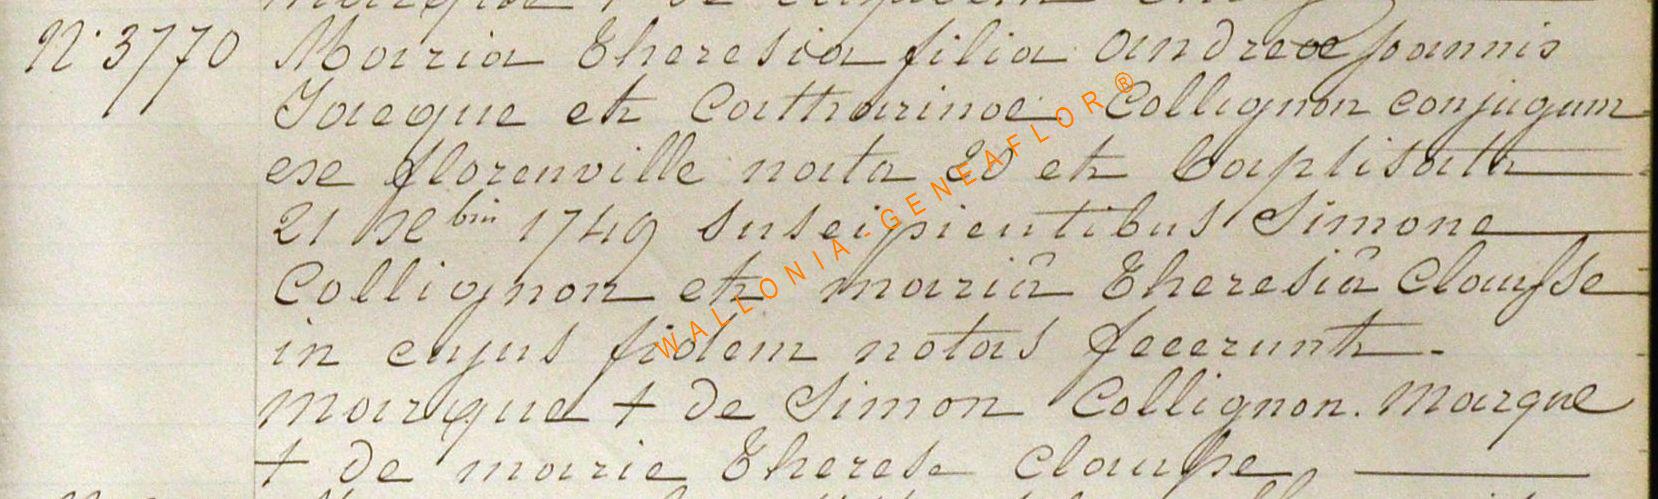 N° 3770 Maria Theresia filia Andreae Joannis
Jacque et Catharinae Collignon conjugum
ex florenville nata 20 et baptisata
21 Xbris 1749 suscipientibus Simone
Collignon et mariâ Theresiâ Clausse
in cujus fidem notas fecerunt.
marque + de Simon Collignon. Marque
+ de marie Therese Clausse
WALLONIA-GENEAFLOR®